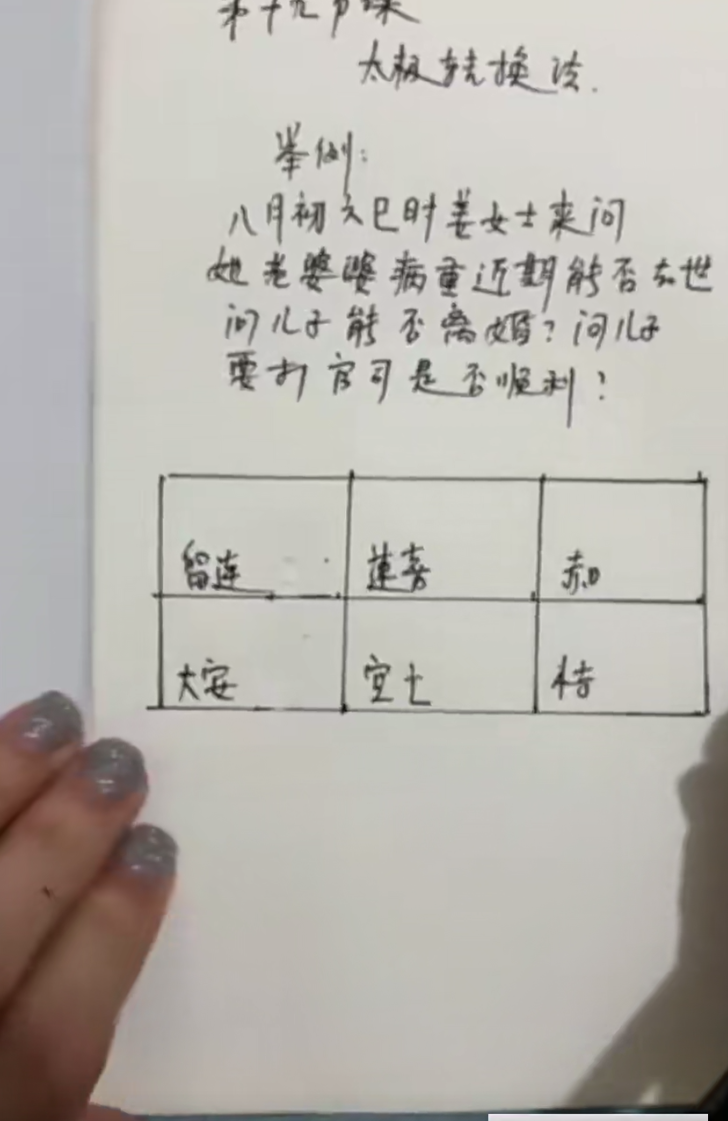 第十九节课
太极转换法.
举例:
八月初六巳时姜女士来问
她老婆婆病重近期能否去世
问儿子能否离婚?问儿子
要打官司是否顺利?
留连 速喜 赤口
大安 空亡 小吉